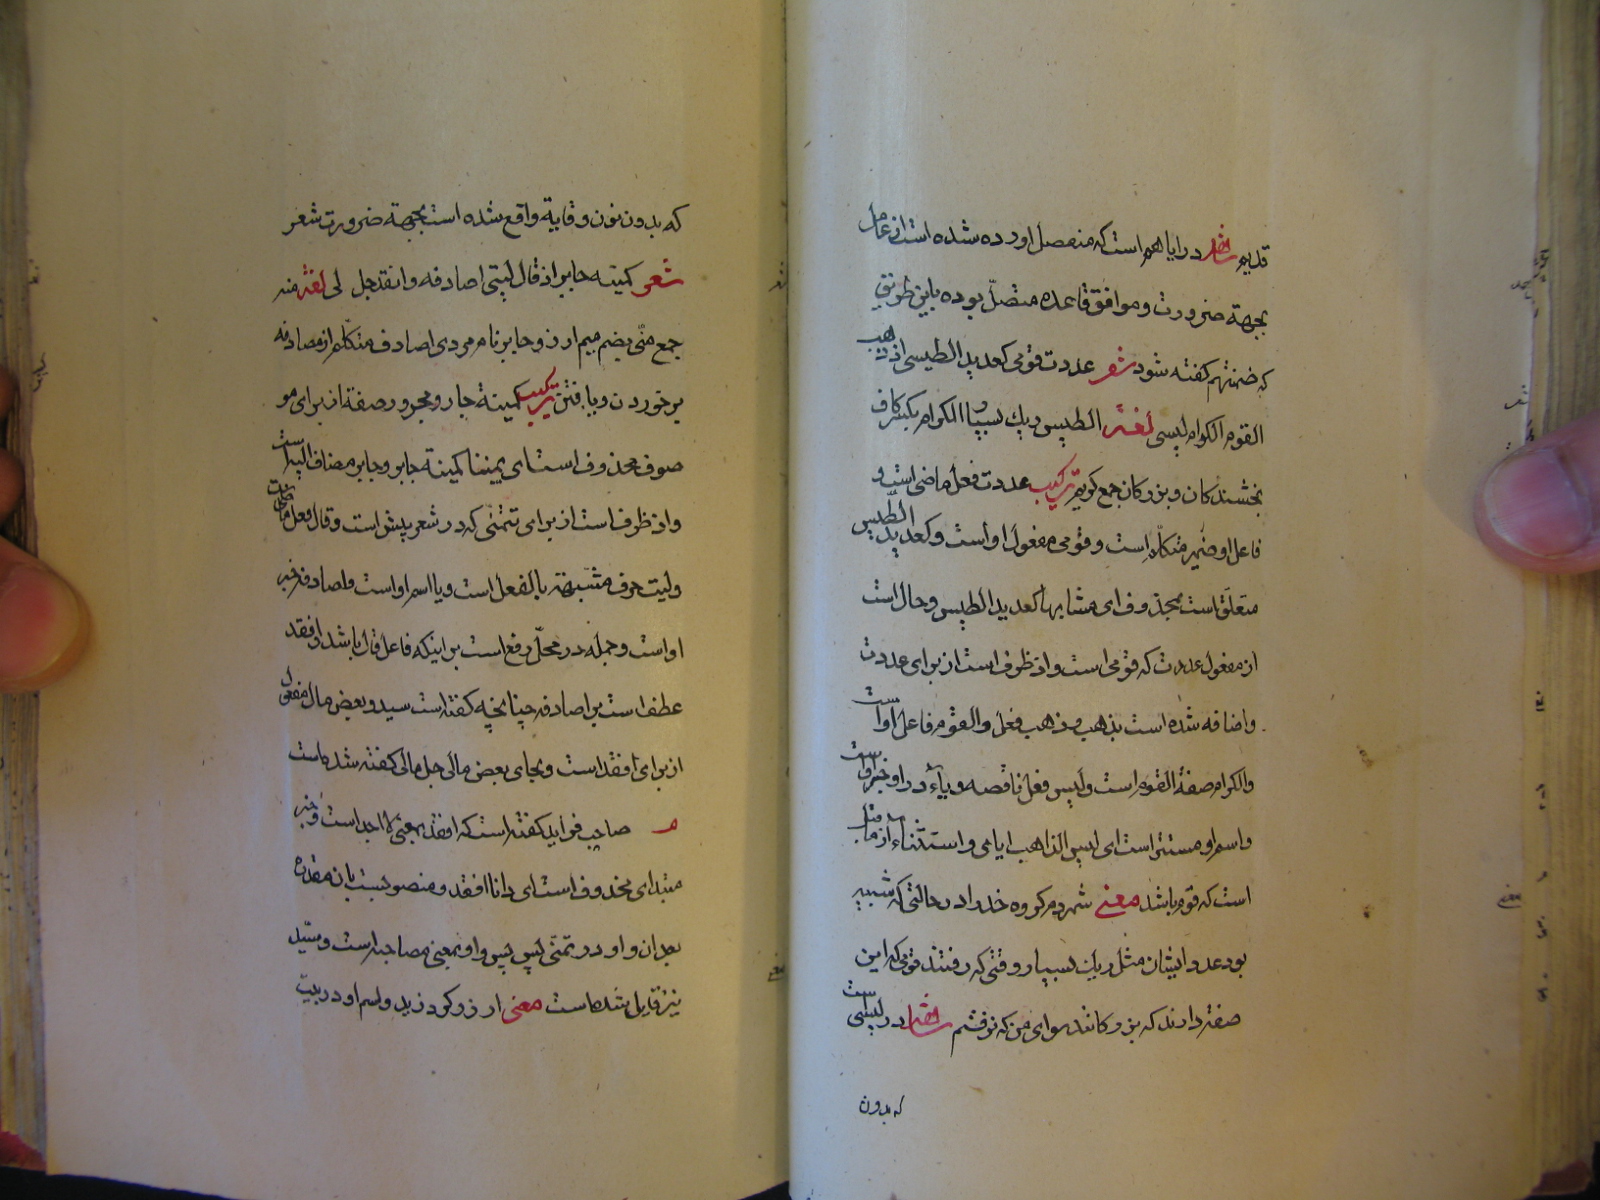 قدیم شاهد در ایاهم است که منفصل اورده شده است از عامل
بجهة ضرورت و موافق قاعده متصل بوده باین طریق
که ضمنتهم کفته شود شعر عددت قومی کعدید الطیس اذ ذهب
القوم الکرام لیسی لغة الطیس ریك بسیار و الکرام بکسر کاف
بخشندکان و بزرکان جمع کریم ترکیب عددت فعل ماضی است و
فاعل او ضمیر متکلم است و قومی مفعول او است و کعدید الطیس
متعلق است بمحذوف ای مشابها کعدید الطیس و حال است
از مفعول عددت که قومی است و اذ ظرف است از برای عددت
واضافه شده است بذهب و ذهب فعل و القوم فاعل او است
والکرام صفة القوم است و لیس فعل ناقصه و یاء در او خبر او است
واسم او مستتر است ای لیس الذاهب ایای و استثناء از ما قبل
است که قوم باشد معنی شمردم کروه خد را در حالتی که شبیه
بود عدد ایشان مثل ریك بسیار وقتی که رفتند قومی که این
صفة دارند که بزرکانند سوای من که نرفتم شاهد در لیسی است
که بدون
که بدون نون وقایة واقع شده است بجهة ضرورت شعر
شعر کمنیة جابر اذ قال لیتی اصادفه وافقد جل لی لغة منیة
جمع منی بضم میم ارزو جابر نام مردی اصادف متکلم از مصادفه
برخوردن و یافتن ترکیب کمنیة جار و مجرور صفة از برای مو
صوف محذوف است ای یمننا کمنیة جابر و جابر مضاف الیه است
واذ ظرف است از برای تمنی که در شعر پیش است و قال فعل ماضی است
ولیت حرف مشبهة بالفعل است و یا اسم او است و اصادفه خبر
او است و جمله در محل رفع است بر اینکه فاعل قال باشد و افقد
عطف است بر اصادفه چنانچه کفته است سید و بعض مال مفعول
از برای افقد است و بجای بعض مالی جل مالی کفته شده است
م صاحب فراید کفته است که افقد بمعنی لا اجد است و خبر
مبتدای محذوف است ای و انا افقد و منصوبست بان مقدره
بعد ان واو در تمنی لیس لیس و او بمعنی مصاحبه است و سید
نیز قایل شده است معنی ارزو کرد زید و اسم او در بیت